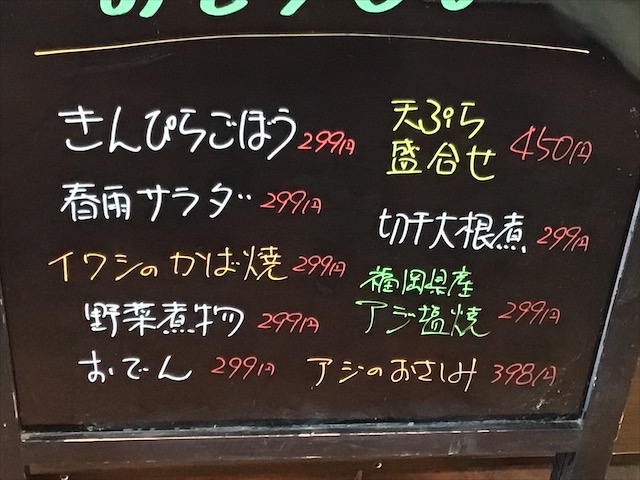 きんぴらごぼう 299円
春雨サラダ 299円
イワシのかば焼 299円
野菜煮物 299円
おでん 299円
天ぷら
盛合せ 450円
切干大根煮 299円
福岡県産
アジ塩焼 299円
アジのおさしみ 398円